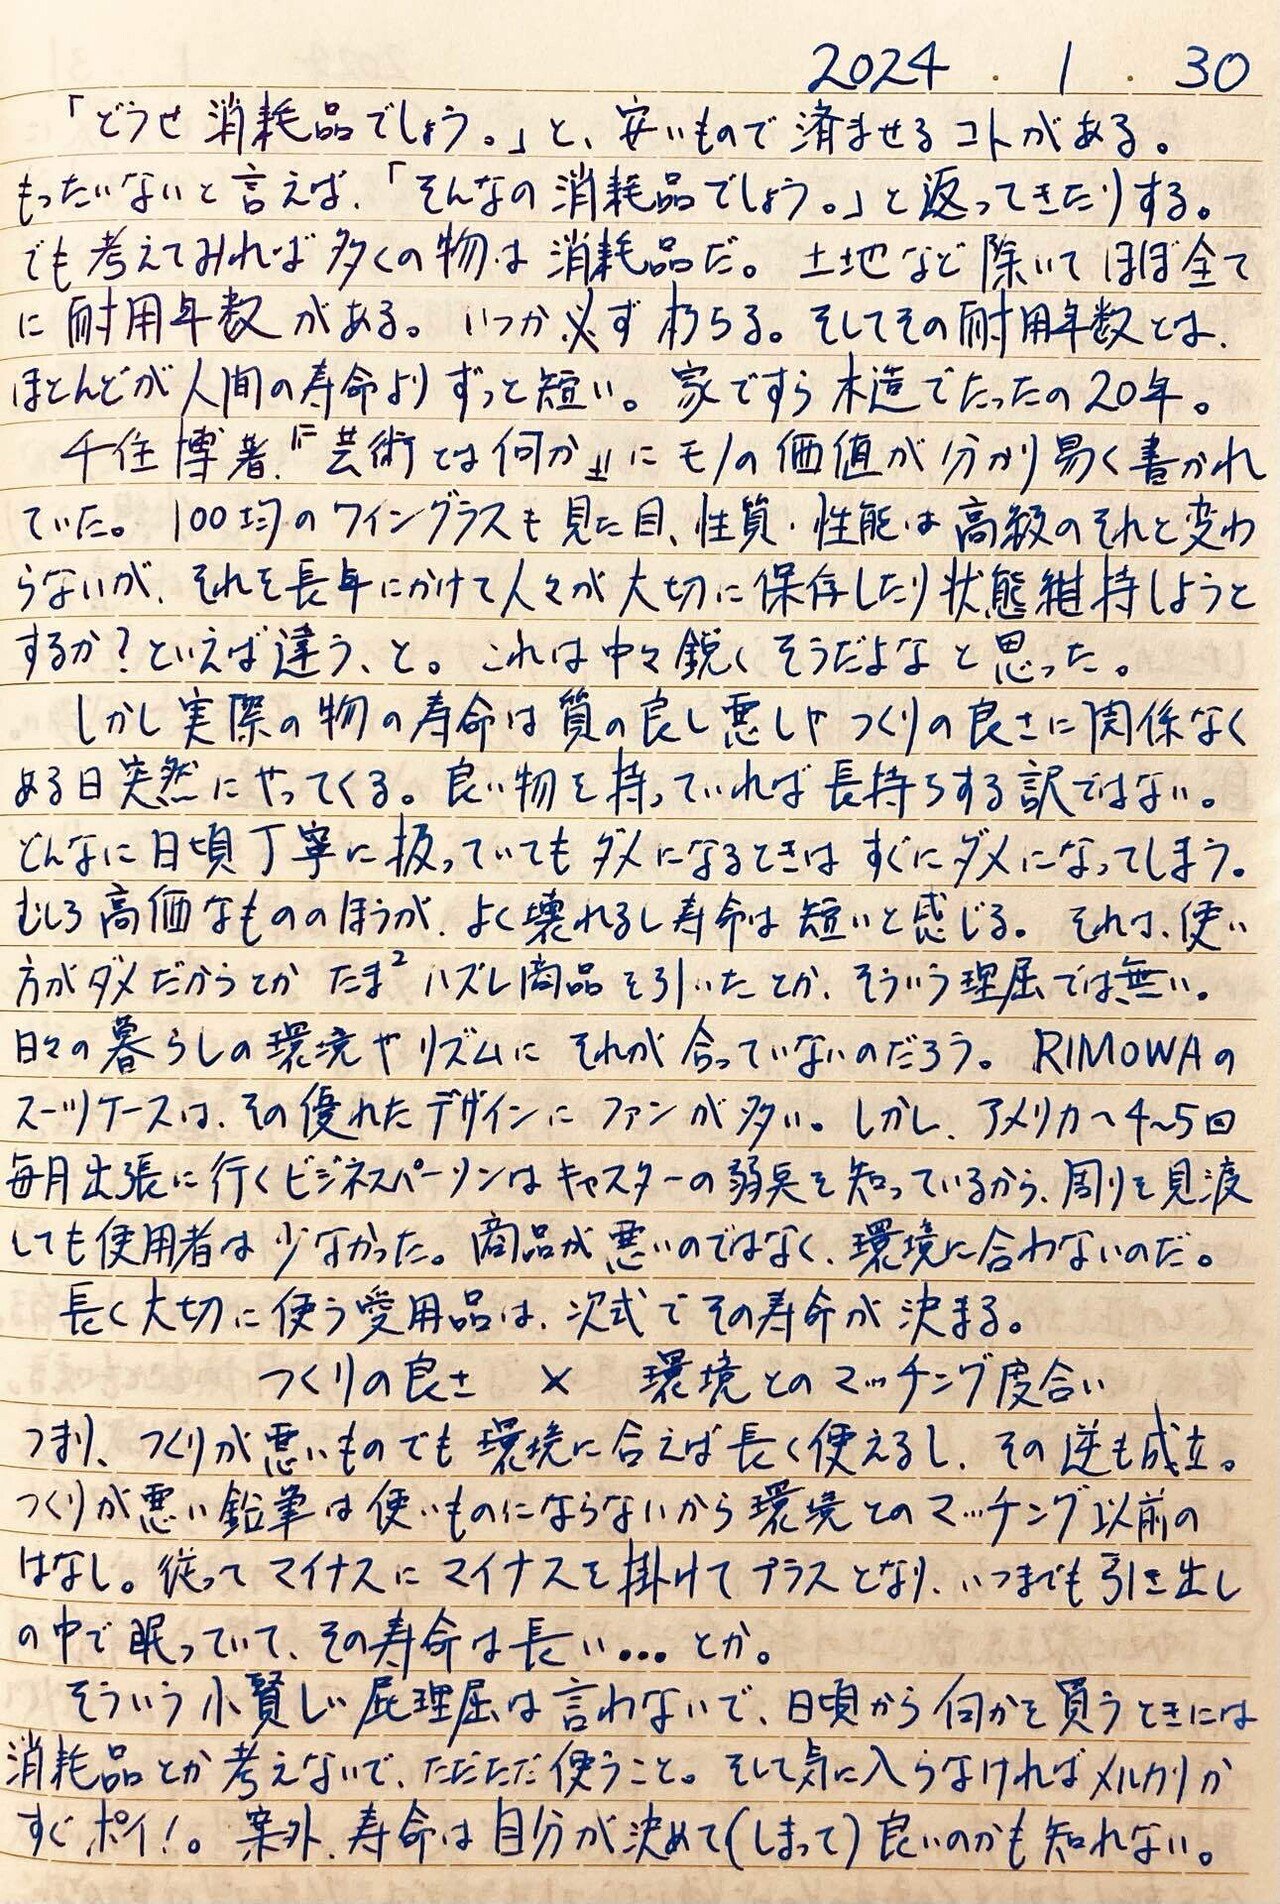 2024 . 1 . 30
「どうせ消耗品でしょう。」と、安いもので済ませるコトがある。
もったいないと言えば、「そんなの消耗品でしょう。」と返ってきたりする。
でも考えてみれば多くの物は消耗品だ。土地など除いてほぼ全て
に耐用年数がある。いつか必ず朽ちる。そしてその耐用年数とは、
ほとんどが人間の寿命よりずっと短い。家ですら木造でたったの20年。
千住博著、『芸術とは何か』にモノの価値が分かり易く書かれ
ていた。100均のワイングラスも見た目、性質・性能は高級のそれと変わ
らないが、それを長年にかけて人々が大切に保存したり状態維持しようと
するか?といえば違う、と。これは中々鋭くそうだよなと思った。
しかし実際の物の寿命は質の良し悪しやつくりの良さに関係なく
ある日突然にやってくる。良い物を持っていれば長持ちする訳ではない。
どんなに日頃丁寧に扱っていてもダメになるときはすぐにダメになってしまう。
むしろ高価なもののほうが、よく壊れるし寿命は短いと感じる。それは、使い
方がダメだからとかたま²ハズレ商品を引いたとか、そういう理屈では無い。
日々の暮らしの環境やリズムにそれが合っていないのだろう。RIMOWAの
スーツケースは、その優れたデザインにファンが多い。しかし、アメリカへ4~5回
毎月出張に行くビジネスパーソンはキャスターの弱点を知っているから、周りを見渡
しても使用者は少なかった。商品が悪いのではなく、環境に合わないのだ。
長く大切に使う愛用品は、次式でその寿命が決まる。
つくりの良さ × 環境とのマッチング度合い
つまり、つくりが悪いものでも環境に合えば長く使えるし、その逆も成立。
つくりが悪い鉛筆は使いものにならないから環境とのマッチング以前の
はなし。従ってマイナスにマイナスを掛けてプラスとなり、いつまでも引き出し
の中で眠っていて、その寿命は長い...とか。
そういう小賢しい屁理屈は言わないで、日頃から何かを買うときには
消耗品とか考えないで、ただただ使うこと。そして気に入らなければメルカリか
すぐポイ!。案外、寿命は自分が決めて(しまって)良いのかも知れない。